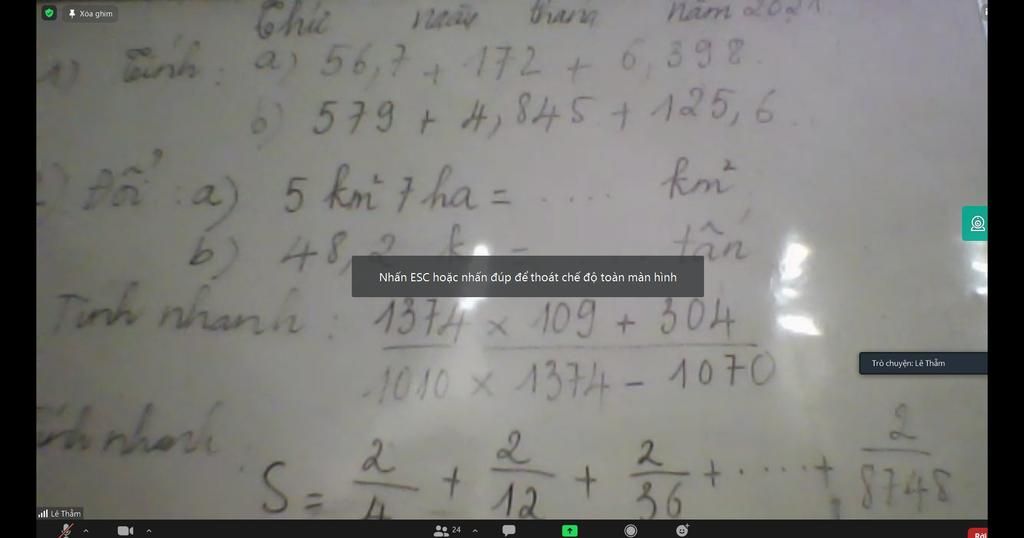 Xóa ghim
Thứ ngày tháng năm 2021
1) Tính: a) 56,7 + 172 + 6,398
b) 579 + 4,845 + 125,6
Đổi: a) 5 km² 7 ha = ..... km²
b) 48,2 = tấn
Nhấn ESC hoặc nhấn đúp để thoát chế độ toàn màn hình
Tính nhanh: 1374 × 109 + 304
1010 × 1374 - 1070
Trò chuyện: Lê Thẩm
Tính nhanh:
S = 2/4 + 2/12 + 2/36 + ..... + 2/8748
Lê Thẩm
24